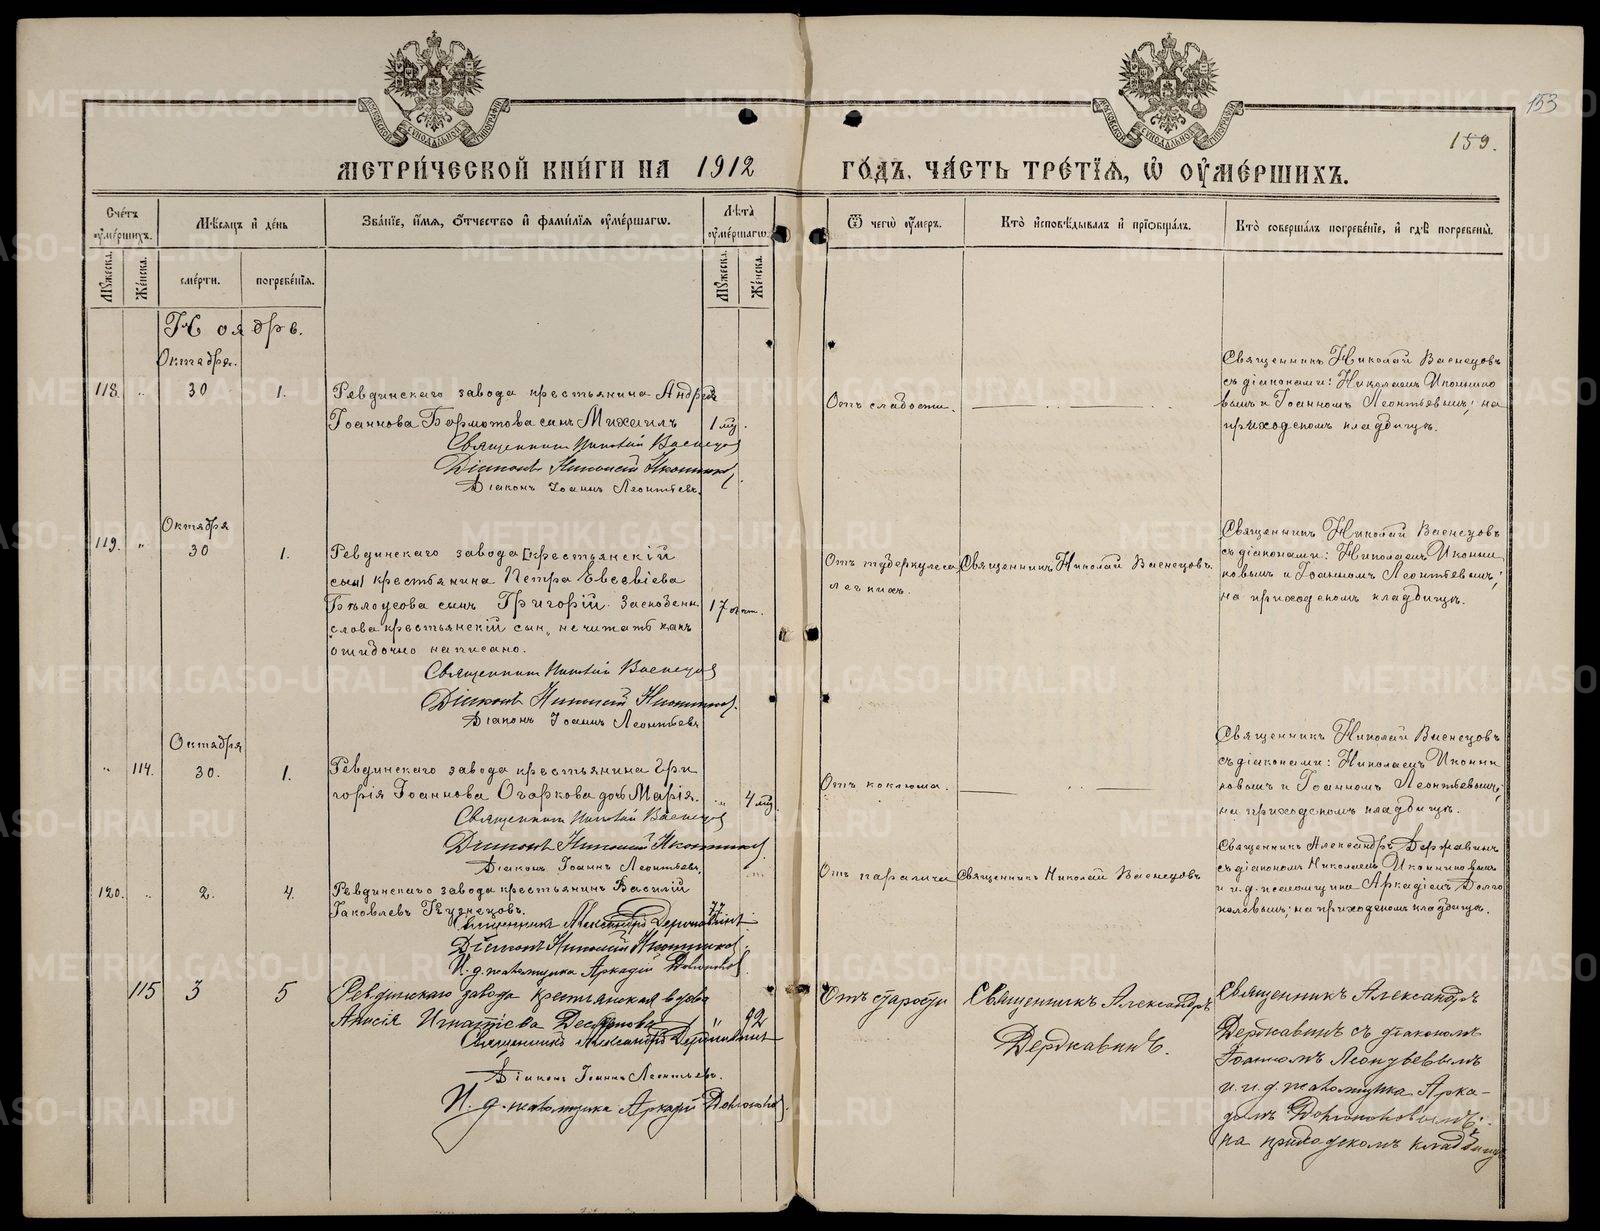 153
159.
МЕТРИ́ЧЕСКОЙ КНИ́ГИ НА 1912 ГО́ДЪ, ЧА́СТЬ ТРЕ́ТІѦ, Ѽ ОУ҆МЕ́РШИХЪ.
Сче́тъ оумѐршихъ.
Мѣсяцъ и҆ де́нь
Зва́нїе, и҆́мѧ, о҆́тчество и҆ фами́лїѧ оуме́ршагѡ.
Лѣта̀ оуме́ршагѡ.
Ѿ чегѡ̀ оу҆́меръ.
Кто̀ и҆сповѣ́дывалъ и҆ прїѡбща́лъ.
Кто̀ соверша́лъ погребе́нїе, и҆ гдѣ̀ погребены̀.
Мꙋжеска.
Же́нска.
сме́рти.
погребе́нїѧ.
Мꙋжеска.
Же́нска.
Ноябрь.
Октября.
118. „ 30 1.
Ревдинскаго завода крестьянина Андрея
Іоаннова Бормотова сынъ Михаилъ 1 мѣ.
Священникъ Николай Васнецов
Діаконъ Николай Иконников
Діаконъ Іоаннъ Леонтьевъ.
Отъ слабости.
Священникъ Николай Васнецовъ
съ діаконами: Николаемъ Иконнико
вымъ и Іоанномъ Леонтьевымъ; на
приходскомъ кладбищѣ.
Октября
119. „ 30 1.
Ревдинскаго завода [крестьянскій
сын] крестьянина Петра Евсевіева
Бѣлоусова сынъ Григорій. Заскобленн.
слова „крестьянскій сын„ не читать какъ
ошибочно написано.
17
Священникъ Николай Васнецов
Діаконъ Николай Иконников.
Діаконъ Іоаннъ Леонтьевъ
Отъ туберкулеса
легкихъ.
Священникъ Николай Васнецовъ.
Священникъ Николай Васнецовъ
съ діаконами: Николаемъ Иконни
ковымъ и Іоанномъ Леонтьевымъ;
на приходскомъ кладбищѣ.
Октября
„ 114. 30. 1.
Ревдинскаго завода крестьянина Гри
горія Іоаннова Огаркова дочь Марія. „ 4 мѣ.
Священникъ Николай Васнецов
Діаконъ Николай Иконников.
Діаконъ Іоаннъ Леонтьевъ.
Отъ коклюша.
Священникъ Николай Васнецовъ
съ діаконами: Николаемъ Иконни
ковымъ и Іоанномъ Леонтьевымъ;
на приходскомъ кладбищѣ.
120. „ 2. 4.
Ревдинскаго завода крестьянинъ Василій
Іаковлевъ Кузнецовъ. 77
Священникъ Александръ Державинъ.
Діаконъ Николай Иконников.
И. д. псаломщика Аркадій
Отъ паралича
Священникъ Николай Васнецовъ
Священникъ Александръ Державинъ
съ діакономъ Николаемъ Иконниковымъ
и и.д. псаломщика Аркадіемъ Долго
половымъ; на приходскомъ кладбищѣ.
115 3 5
Ревдинскаго завода крестьянская вдова
Анисія Игнатіева „ 92
Священникъ Александръ Державинъ
Діаконъ Іоаннъ Леонтьевъ.
И. д. псаломщика Аркадій
Отъ старости
Священникъ Александръ
Державинъ.
Священникъ Александръ
Державинъ съ діакономъ
Іоанномъ Леонтьевымъ
и и. д. псаломщика Арка-
діемъ
на приходскомъ кладбищѣ
METRIKI.GASO-URAL.RU